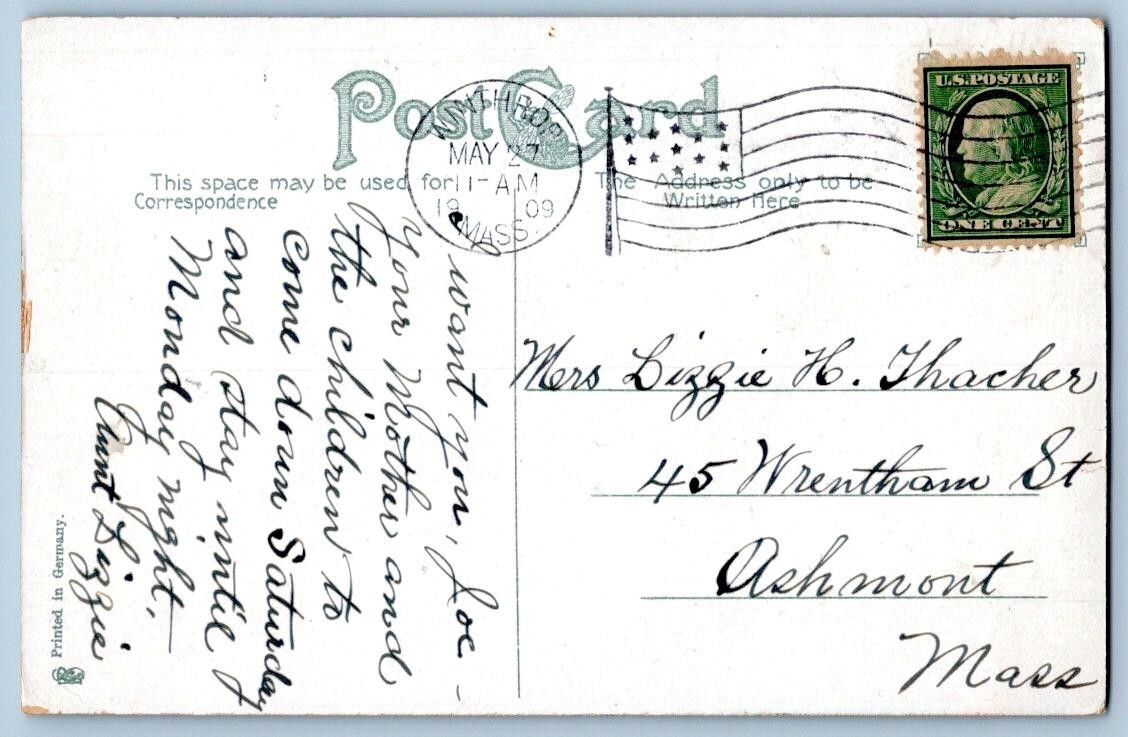 Post Card
WINTHROP
MAY 27
11-AM
19 09
MASS.
U.S. POSTAGE
ONE CENT
This space may be used for
Correspondence
The Address only to be
Written Here
I want you, Joe -
your Mother and
the children to
come down Saturday
and stay until
Monday night.
Aunt Lizzie
Mrs Lizzie H. Thacher
45 Wrentham St
Ashmont
Mass
Printed in Germany.